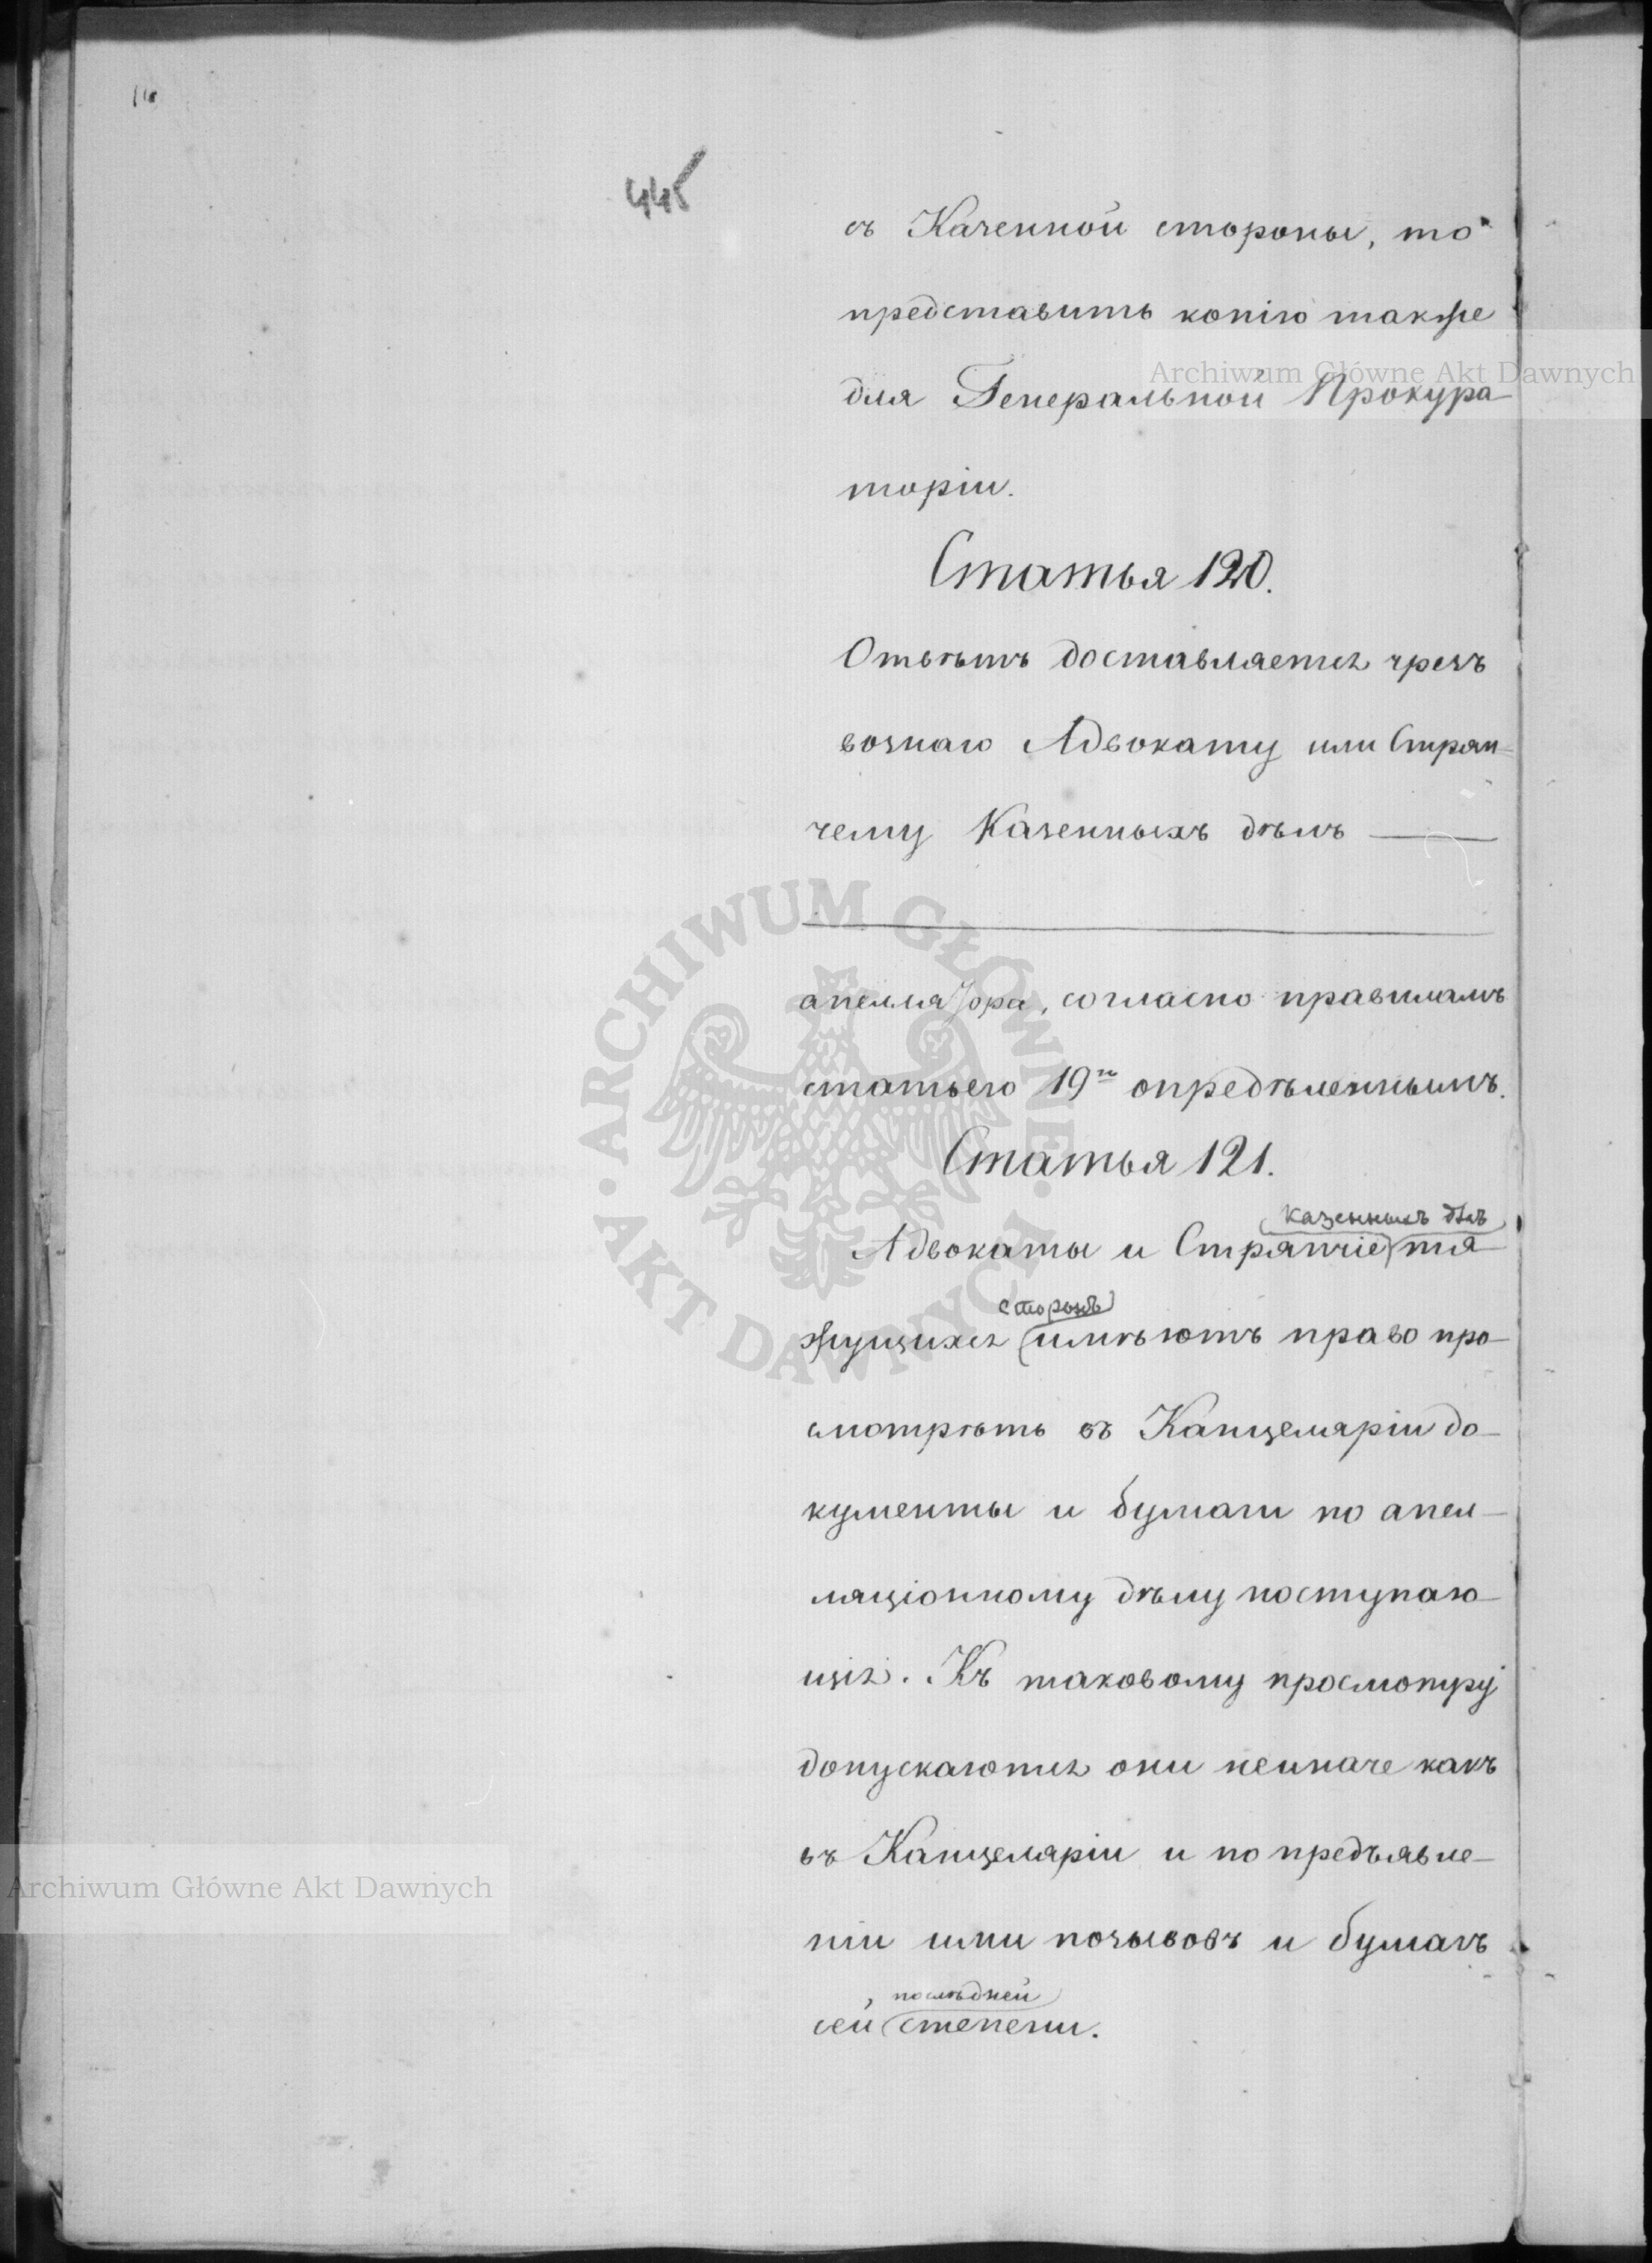 445
съ Казенной стороны, то
представить копію также
для Генеральной Прокура-
торіи.
Статья 120.
Отвѣтъ доставляется чрезъ
вознаго Адвокату или Стряп-
чему Казенныхъ дѣлъ
апеллятора, согласно правиламъ
статьею 19й опредѣленнымъ.
Статья 121.
казенныхъ дѣлъ
Адвокаты и Стряпчіе тя-
сторонъ
жущихся имѣютъ право про-
смотрѣть въ Канцеляріи до-
кументы и бумаги по апел-
ляціонному дѣлу поступаю-
щія. Къ таковому просмотру
допускаются они неиначе какъ
въ Канцеляріи и по предъявле-
ніи ими позывовъ и бумагъ
послѣдней
сей степени.
Archiwum Główne Akt Dawnych
Archiwum Główne Akt Dawnych
ARCHIWUM GŁÓWNE AKT DAWNYCH